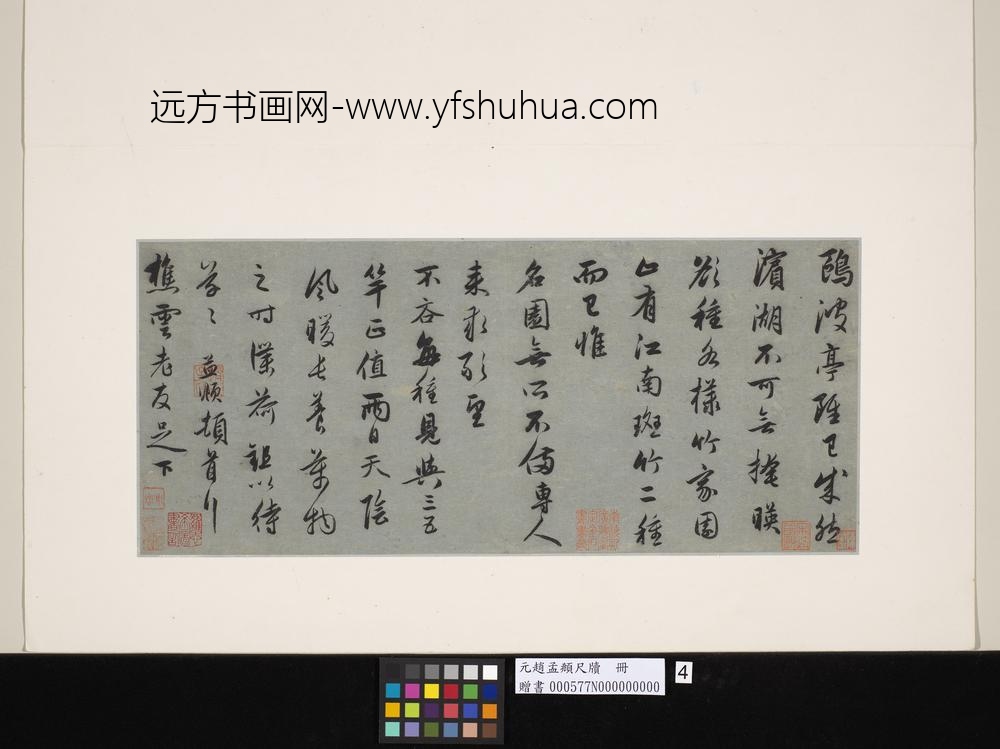 远方书画网-www.yfshuhua.com
鷗波亭雖已成然
濱湖不可無掩暎
欲種各樣竹家園
止有江南斑竹二種
而已惟
名園無所不俻專人
来求敢望
不吝每種見與三五
竿正值兩日天陰
風暖長養萬物
之时謹荷鉏以待
孟頫頓首
樵雲老友足下
元趙孟頫尺牘　冊
贈書 000577N000000000
4